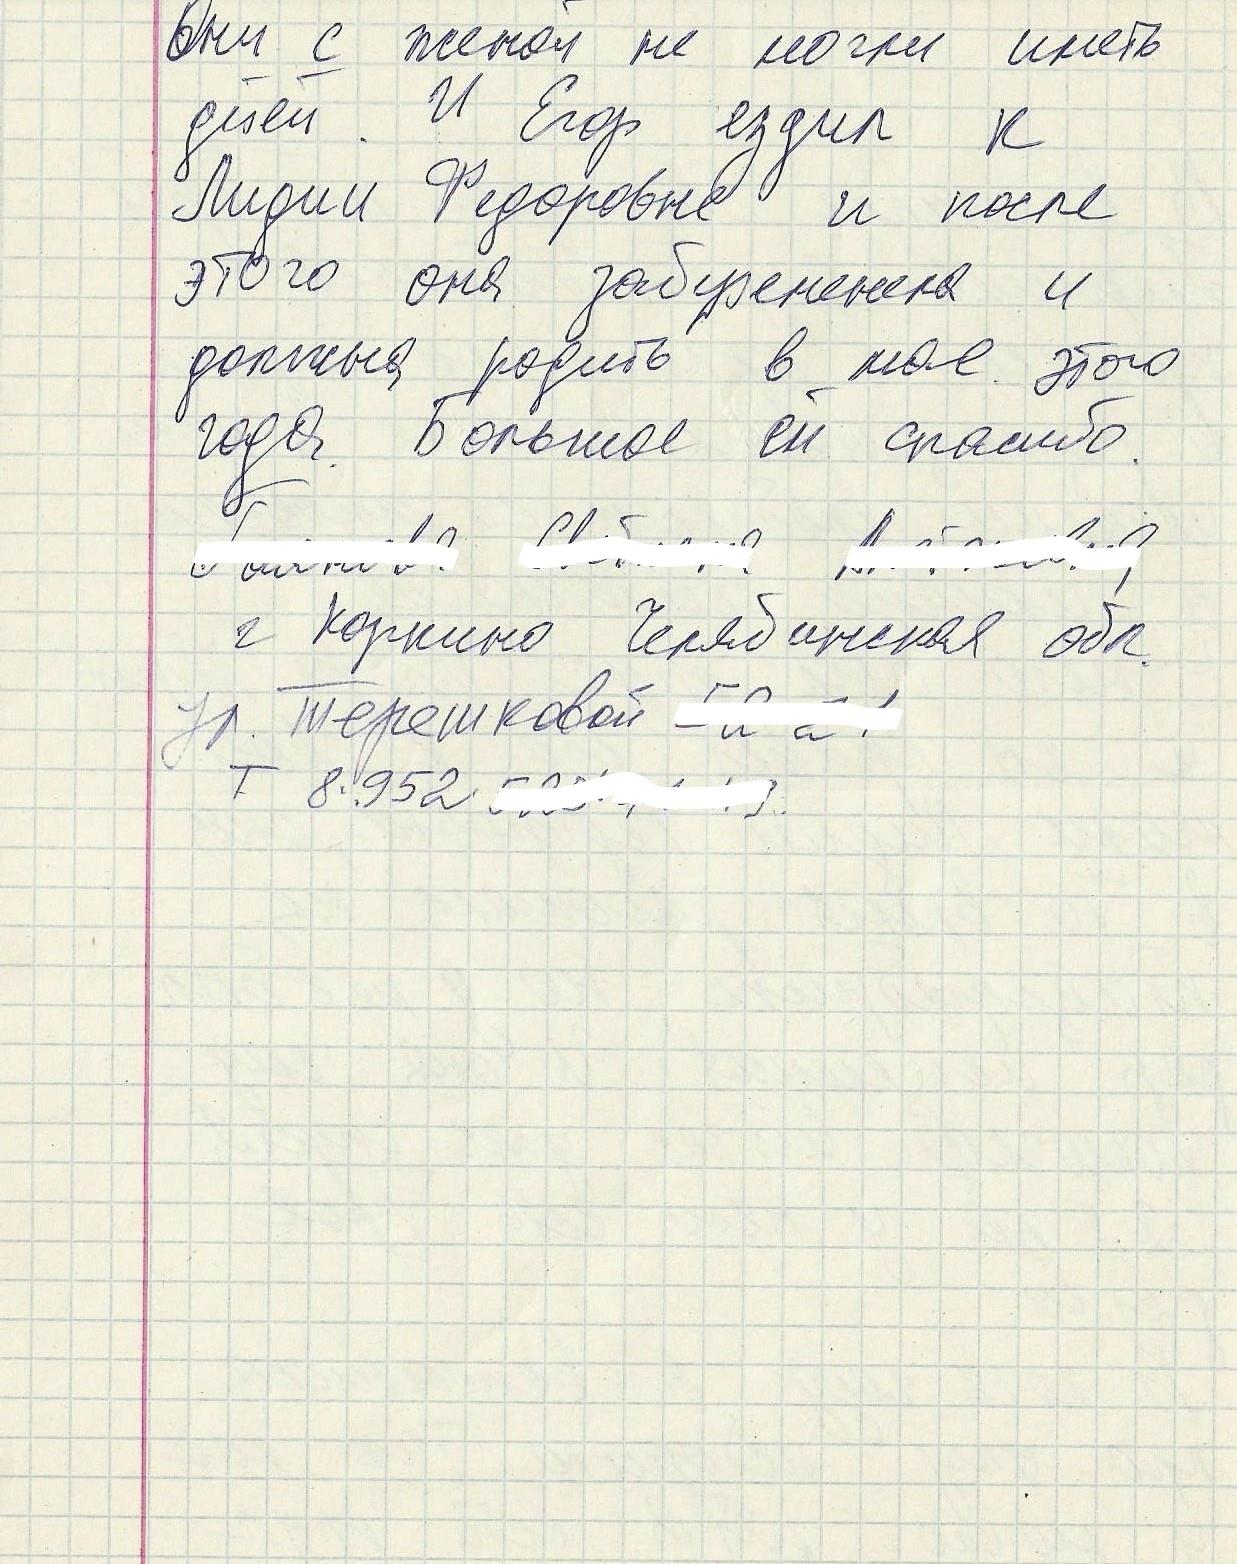 Они с женой не могли иметь
дітей. И Егор ездил к
Лидии Федоровне и после
этого она забеременела и
должна родить в мае этого
года. Большое ей спасибо.
г Коркино Челябинская обл.
ул. Терешковой
т 8.952